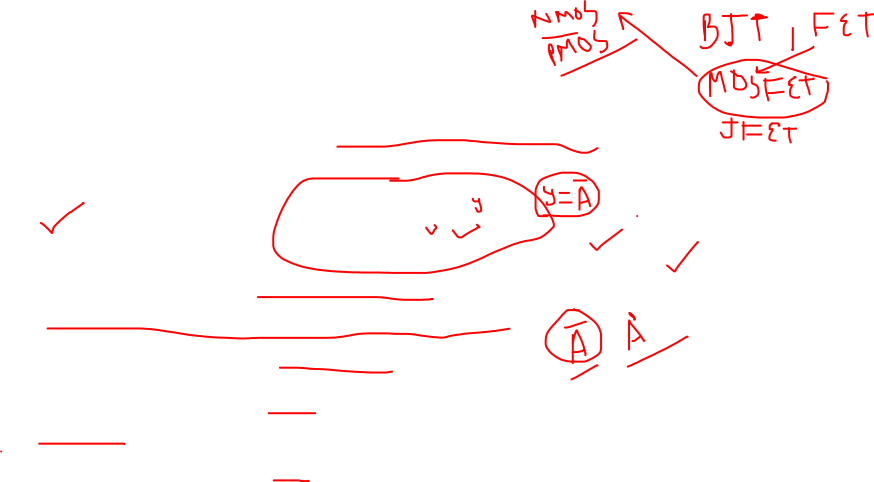 NMOS
PMOS
BJT | FET
MOSFET
JFET
y = A̅
y
A̅ A